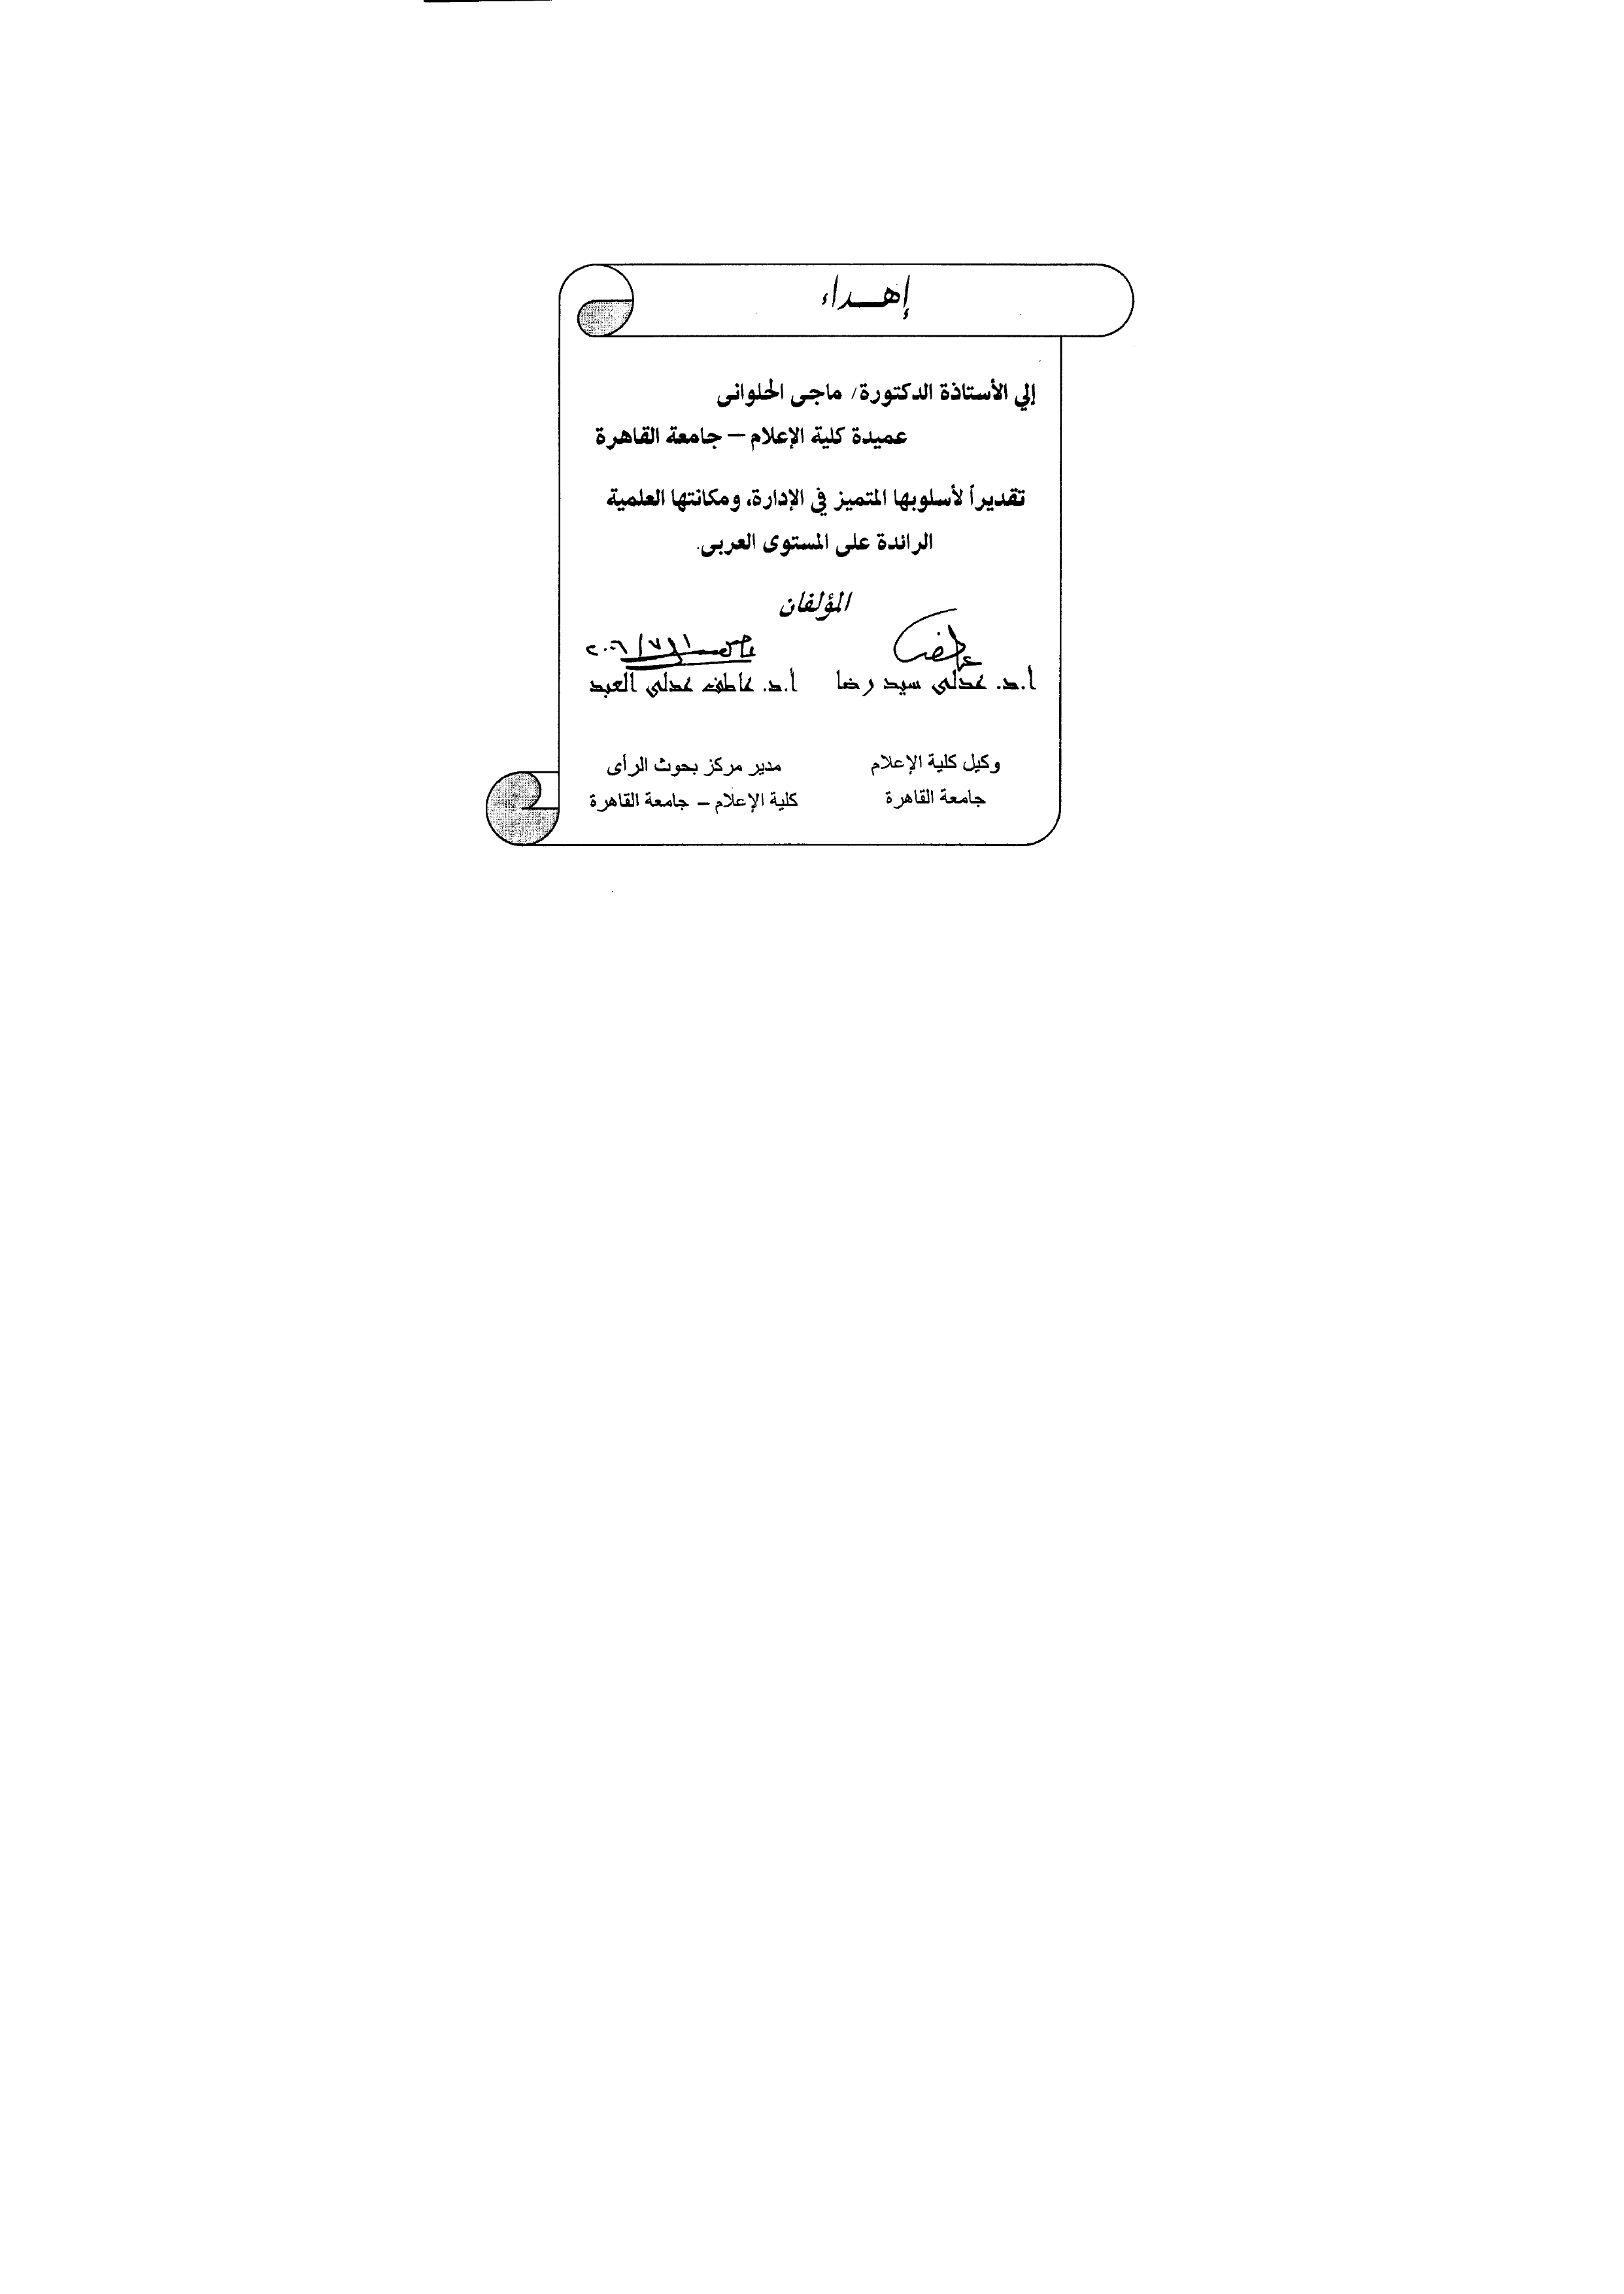 إهـــداء
إلي الأستاذة الدكتورة/ ماجى الحلوانى
عميدة كلية الإعلام – جامعة القاهرة
تقديراً لأسلوبها المتميز في الإدارة، ومكانتها العلمية
الرائدة على المستوى العربى.
المؤلفان
٢٠٠٦/٧/١
أ.د. عدلى سيد رضا أ.د. عاطف عدلى العبد
وكيل كلية الإعلام مدير مركز بحوث الرأى
جامعة القاهرة كلية الإعلام – جامعة القاهرة